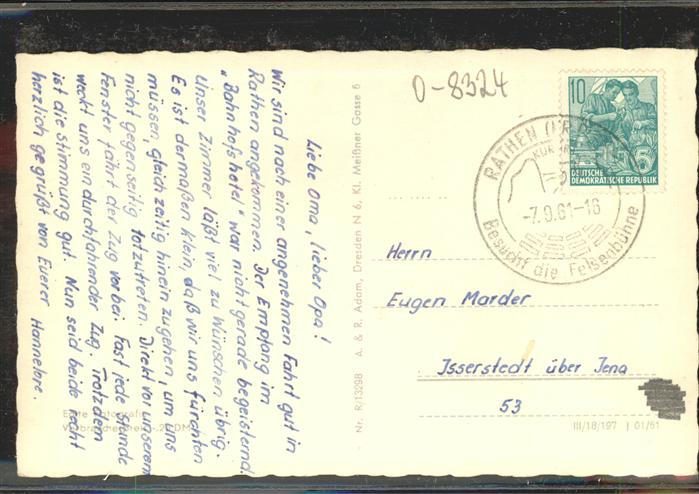 Liebe Oma, lieber Opa!
Wir sind nach einer angenehmen Fahrt gut in
Rathen angekommen. Der Empfang im
"Bahnhofshotel" war nicht gerade begeisternd.
Unser Zimmer läßt viel zu Wünschen übrig.
Es ist dermaßen klein, daß wir uns fürchten
müssen, gleichzeitig hinein zugehen, um uns
nicht gegenseitig totzutreten. Direkt vor unserem
Fenster fährt der Zug vorbei. Fast jede Stunde
weckt uns ein durchfahrender Zug. Trotzdem
ist die Stimmung gut. Nun seid beide recht
herzlich gegrüßt von Euerer Hannelore.
Echte Fotografie
Nr. R/13298 A. & R. Adam, Dresden N 6, Kl. Meißner Gasse 6
0-8324
10
DEUTSCHE
DEMOKRATISCHE REPUBLIK
RATHEN
-7.9.61-16
Besucht die Felsenbühne
Herrn
Eugen Marder
Isserstedt über Jena
53
III/18/197 J 01/61